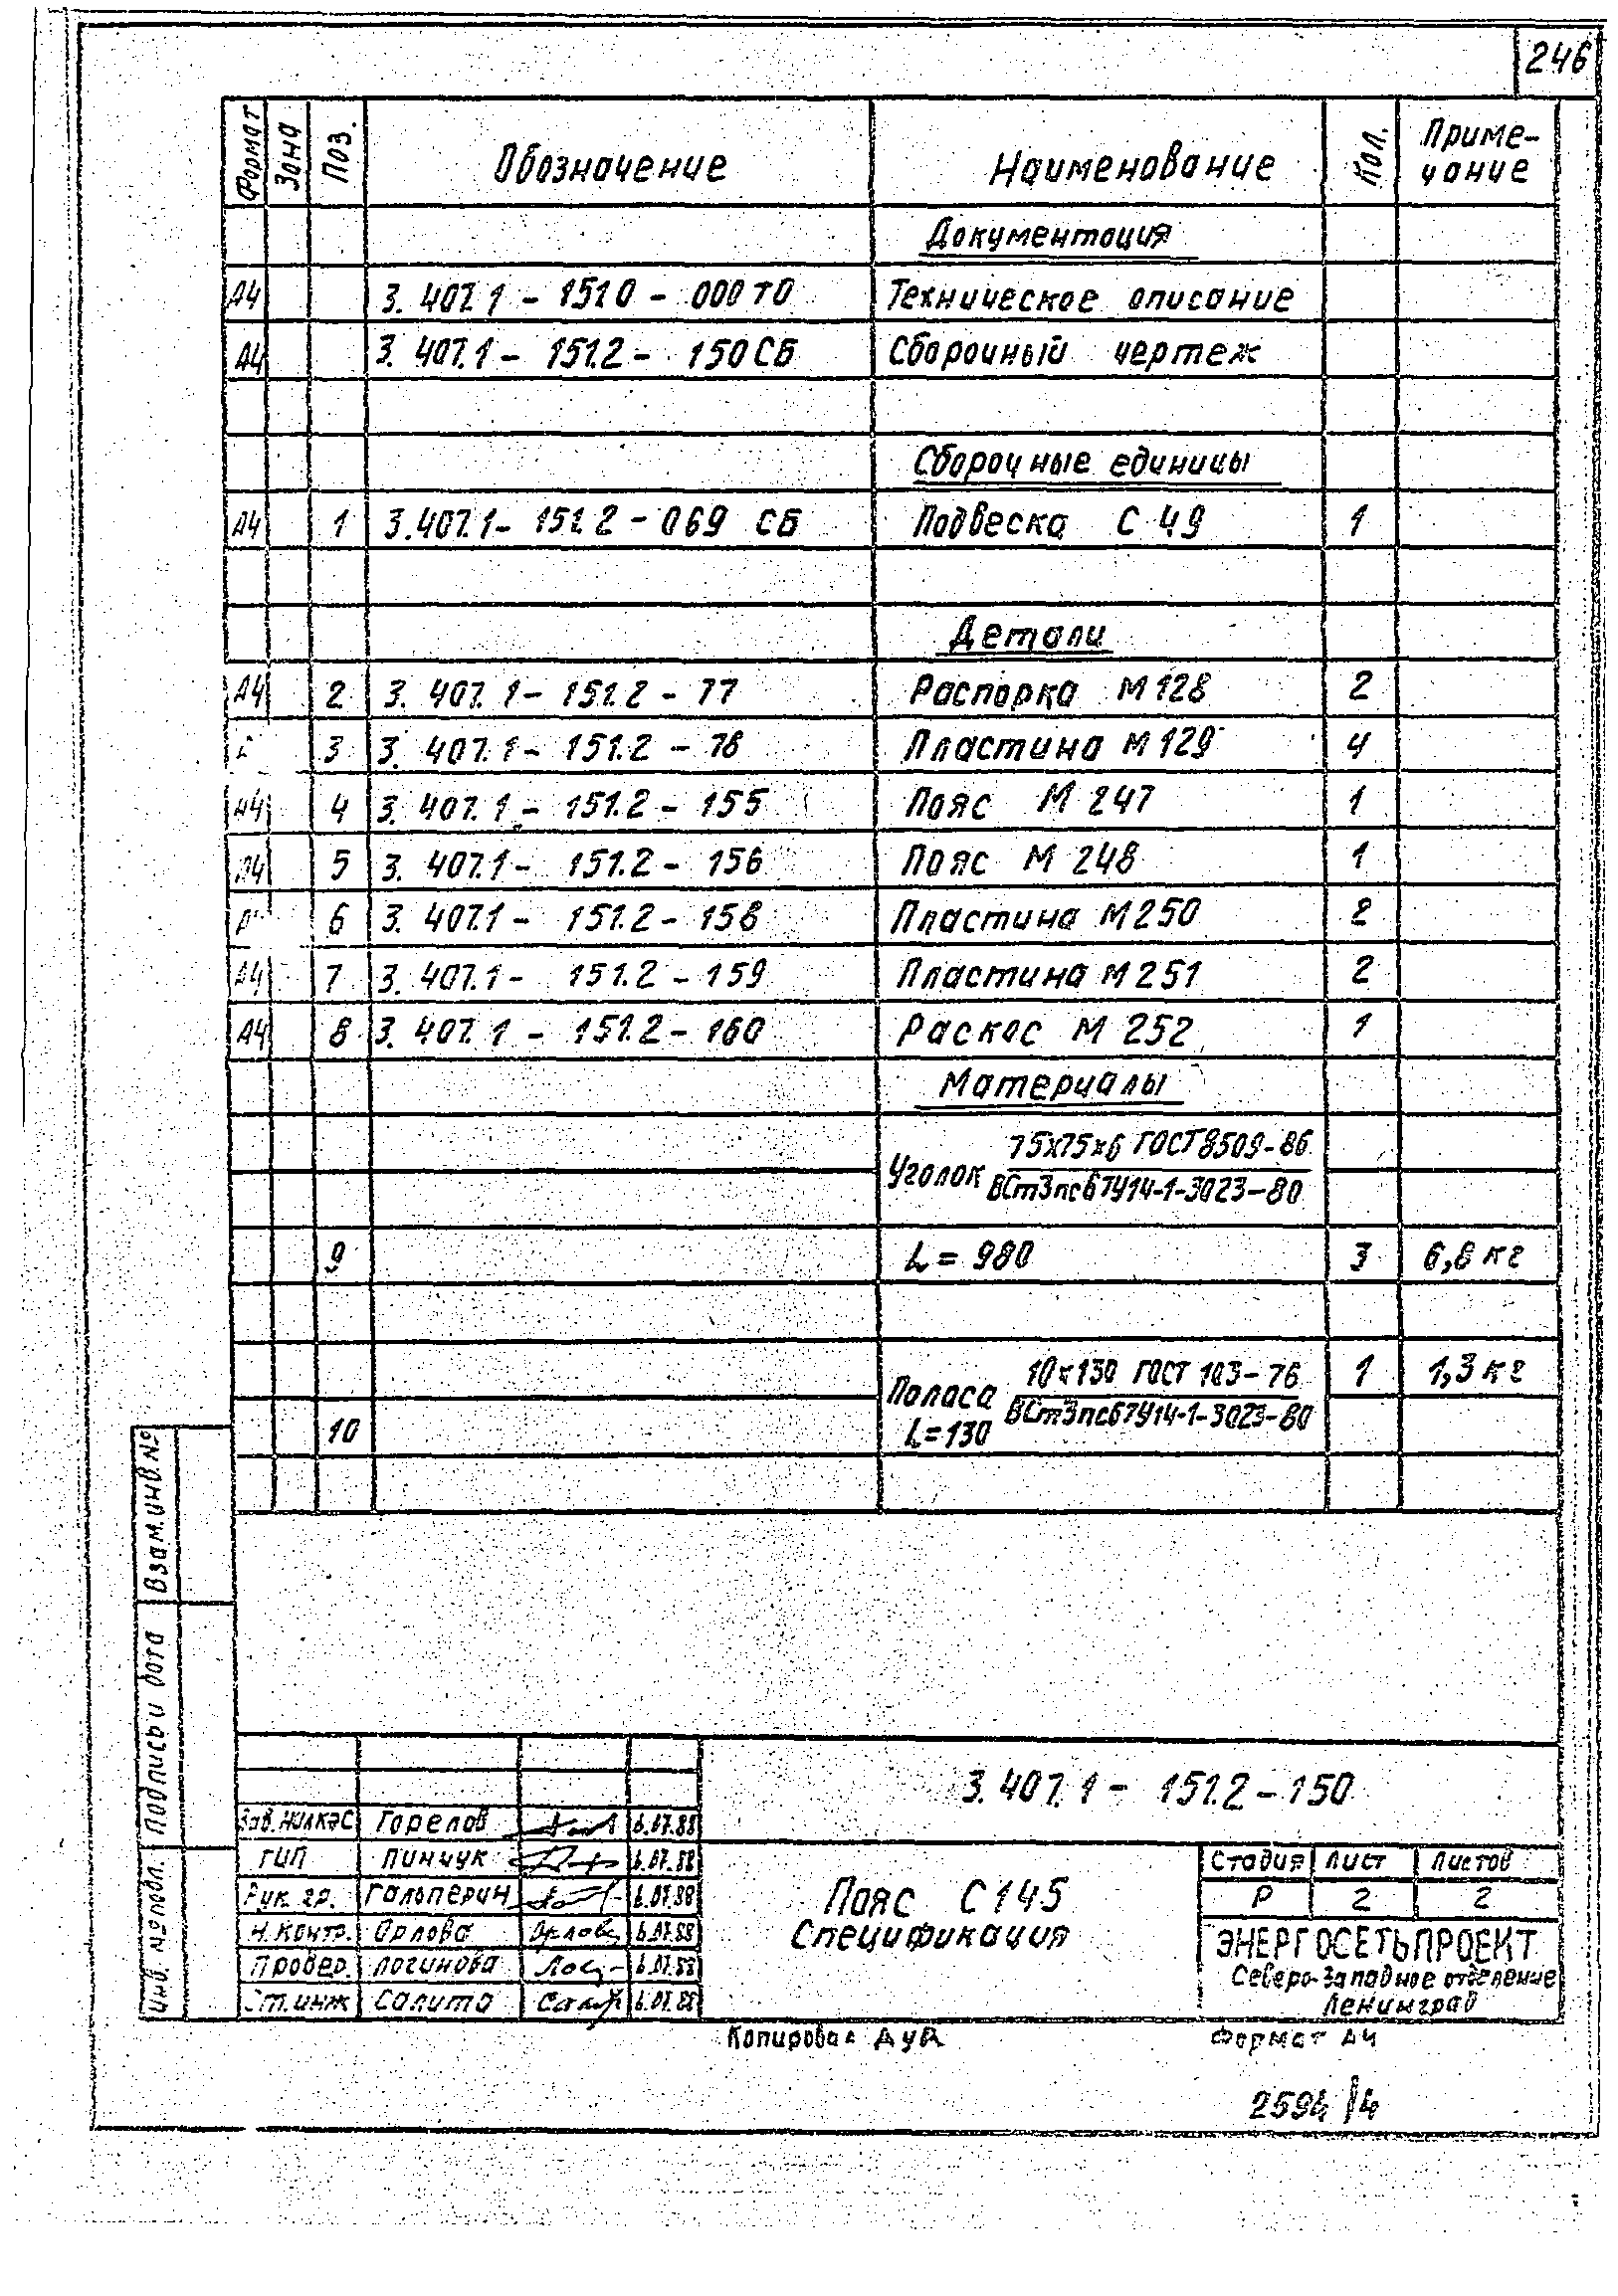 246
Формат Зона Поз. Обозначение Наименование Кол. Приме-
чание
Документация
А4 3.407.1 - 151.0 - 000 ТО Техническое описание
А4 3.407.1 - 151.2 - 150 СБ Сборочный чертеж
Сборочные единицы
А4 1 3.407.1 - 151.2 - 069 СБ Подвеска С 49 1
Детали
А4 2 3.407.1 - 151.2 - 77 Распорка М 128 2
3 3.407.1 - 151.2 - 78 Пластина М 129 4
А4 4 3.407.1 - 151.2 - 155 Пояс М 247 1
А4 5 3.407.1 - 151.2 - 156 Пояс М 248 1
6 3.407.1 - 151.2 - 158 Пластина М 250 2
А4 7 3.407.1 - 151.2 - 159 Пластина М 251 2
А4 8 3.407.1 - 151.2 - 160 Раскос М 252 1
Материалы
75х75х6 ГОСТ 8509-86
Уголок ВСт3пс6 ТУ14-1-3023-80
9 L = 980 3 6,8 кг
10х130 ГОСТ 103-76 1 1,3 кг
Полоса ВСт3пс6 ТУ14-1-3023-80
10 L=130
Взам. инв. №
Подпись и дата
Инв. № подл.
3.407.1 - 151.2 - 150
Зав. НИЛКЭС Горелов 6.07.88
ГИП Пинчук 6.07.88
Рук. гр. Гальперин 6.07.88
Н. контр. Орлова Орлова 6.07.88
Провер. Логинова 6.07.88
Ст. инж Салита 6.07.88
Пояс С 145
Спецификация
Стадия Лист Листов
Р 2 2
ЭНЕРГОСЕТЬПРОЕКТ
Северо-Западное отделение
Ленинград
Копировал Формат А4
2594/4